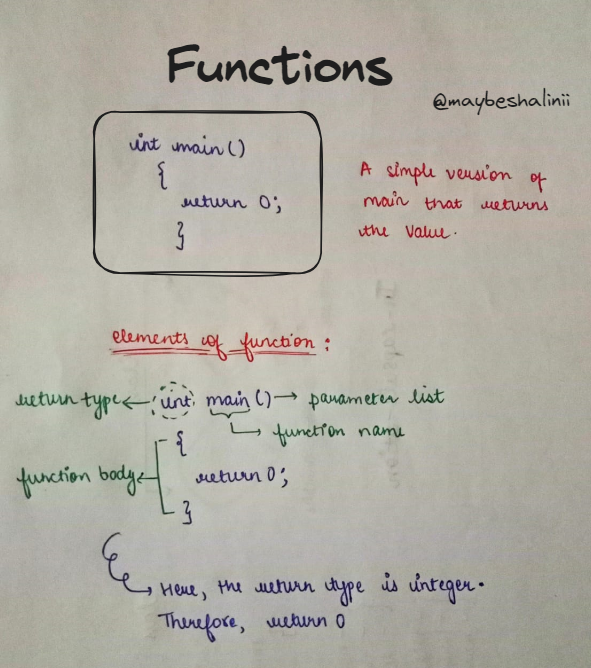 Functions
@maybeshalinii
int main()
{
return 0;
}
A simple version of
main that returns
the value.
elements of function :
return type int main() parameter list
function name
{
function body
return 0;
}
Here, the return type is integer.
Therefore, return 0